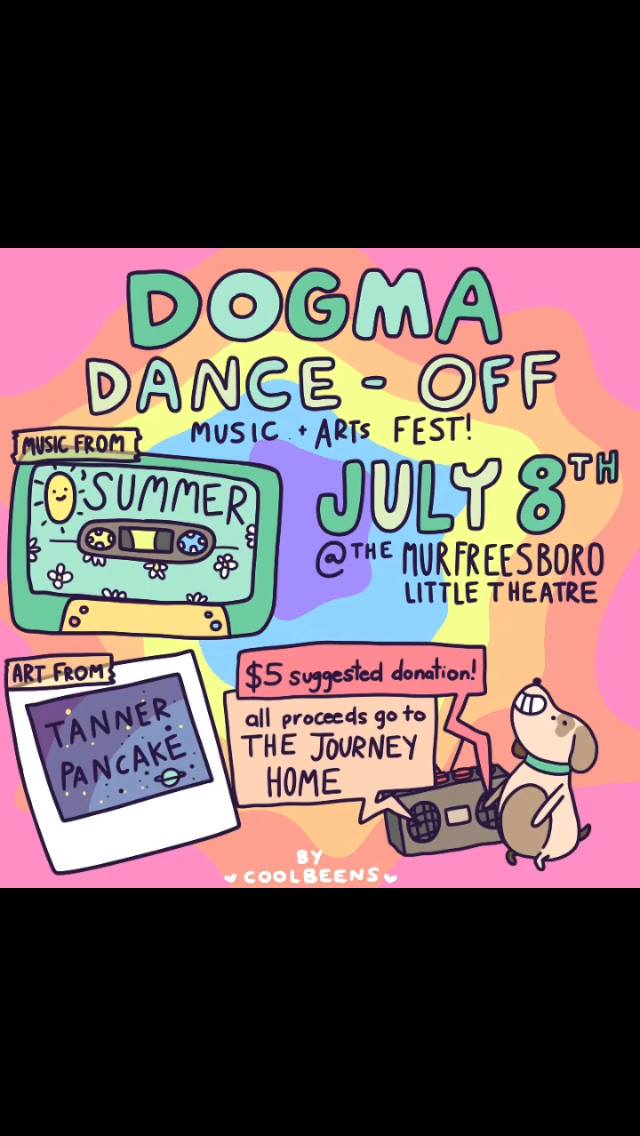 DOGMA
DANCE - OFF
MUSIC + ARTS FEST!
MUSIC FROM
'SUMMER
JULY 8TH
@ THE MURFREESBORO
LITTLE THEATRE
ART FROM
TANNER
PANCAKE
$5 suggested donation!
all proceeds go to
THE JOURNEY
HOME
BY
COOLBEENS